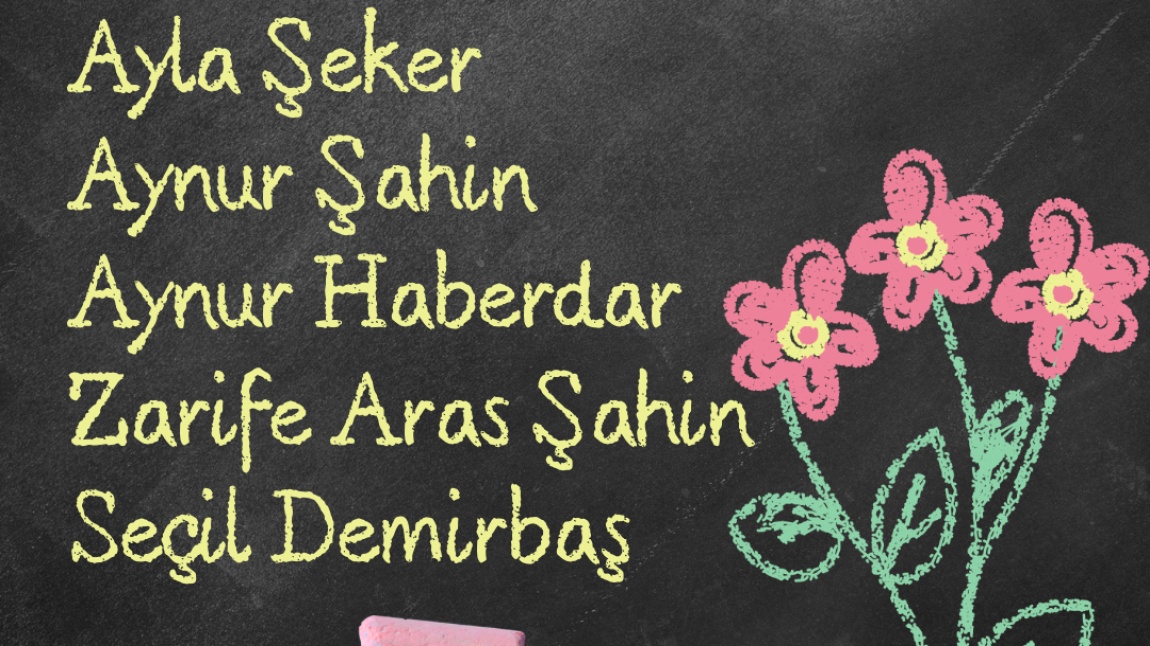 Ayla Şeker
Aynur Şahin
Aynur Haberdar
Zarife Aras Şahin
Seçil Demirbaş